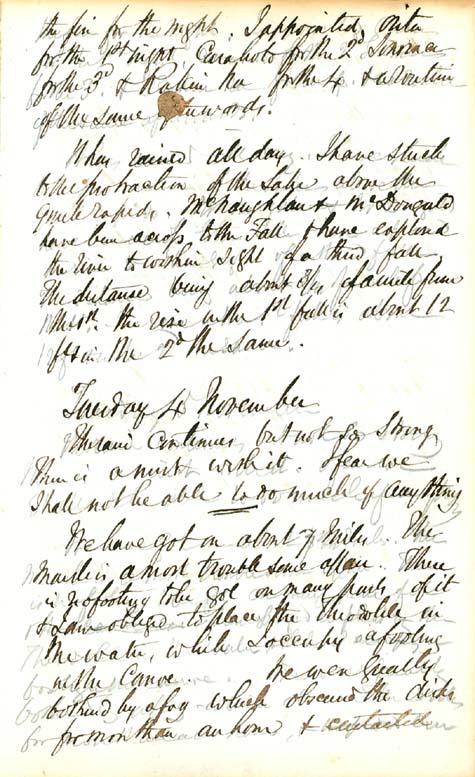 the fire for the night. I appointed,
for the 1st night, for the 2d
for the 3d. & for the 4. & a routine
of the same afterwards.
It has rained all day. I have stuck
to the protraction of the Lake above the
9 mile rapids. McNaughlan & McDougald
have been across to the Fall & have explored
the river to within sight of a third fall.
The distance being about of a mile from
the 1st. the rise in the 1st fall is about 12
fts in the 2d the same.
Tuesday 4 November
The rain continues but not so strong
There is a mist with it. I fear we
shall not be able to do much if anything
We have got on about 7 Miles. The
Marsh is a most troublesome affair. There
is no footing to be got on many parts of it
& I am obliged to place the theodolite in
the water, while I occupy a footing
in the Canoe. We were greatly
bothered by a fog which obscured the disks
for more than an hour, &